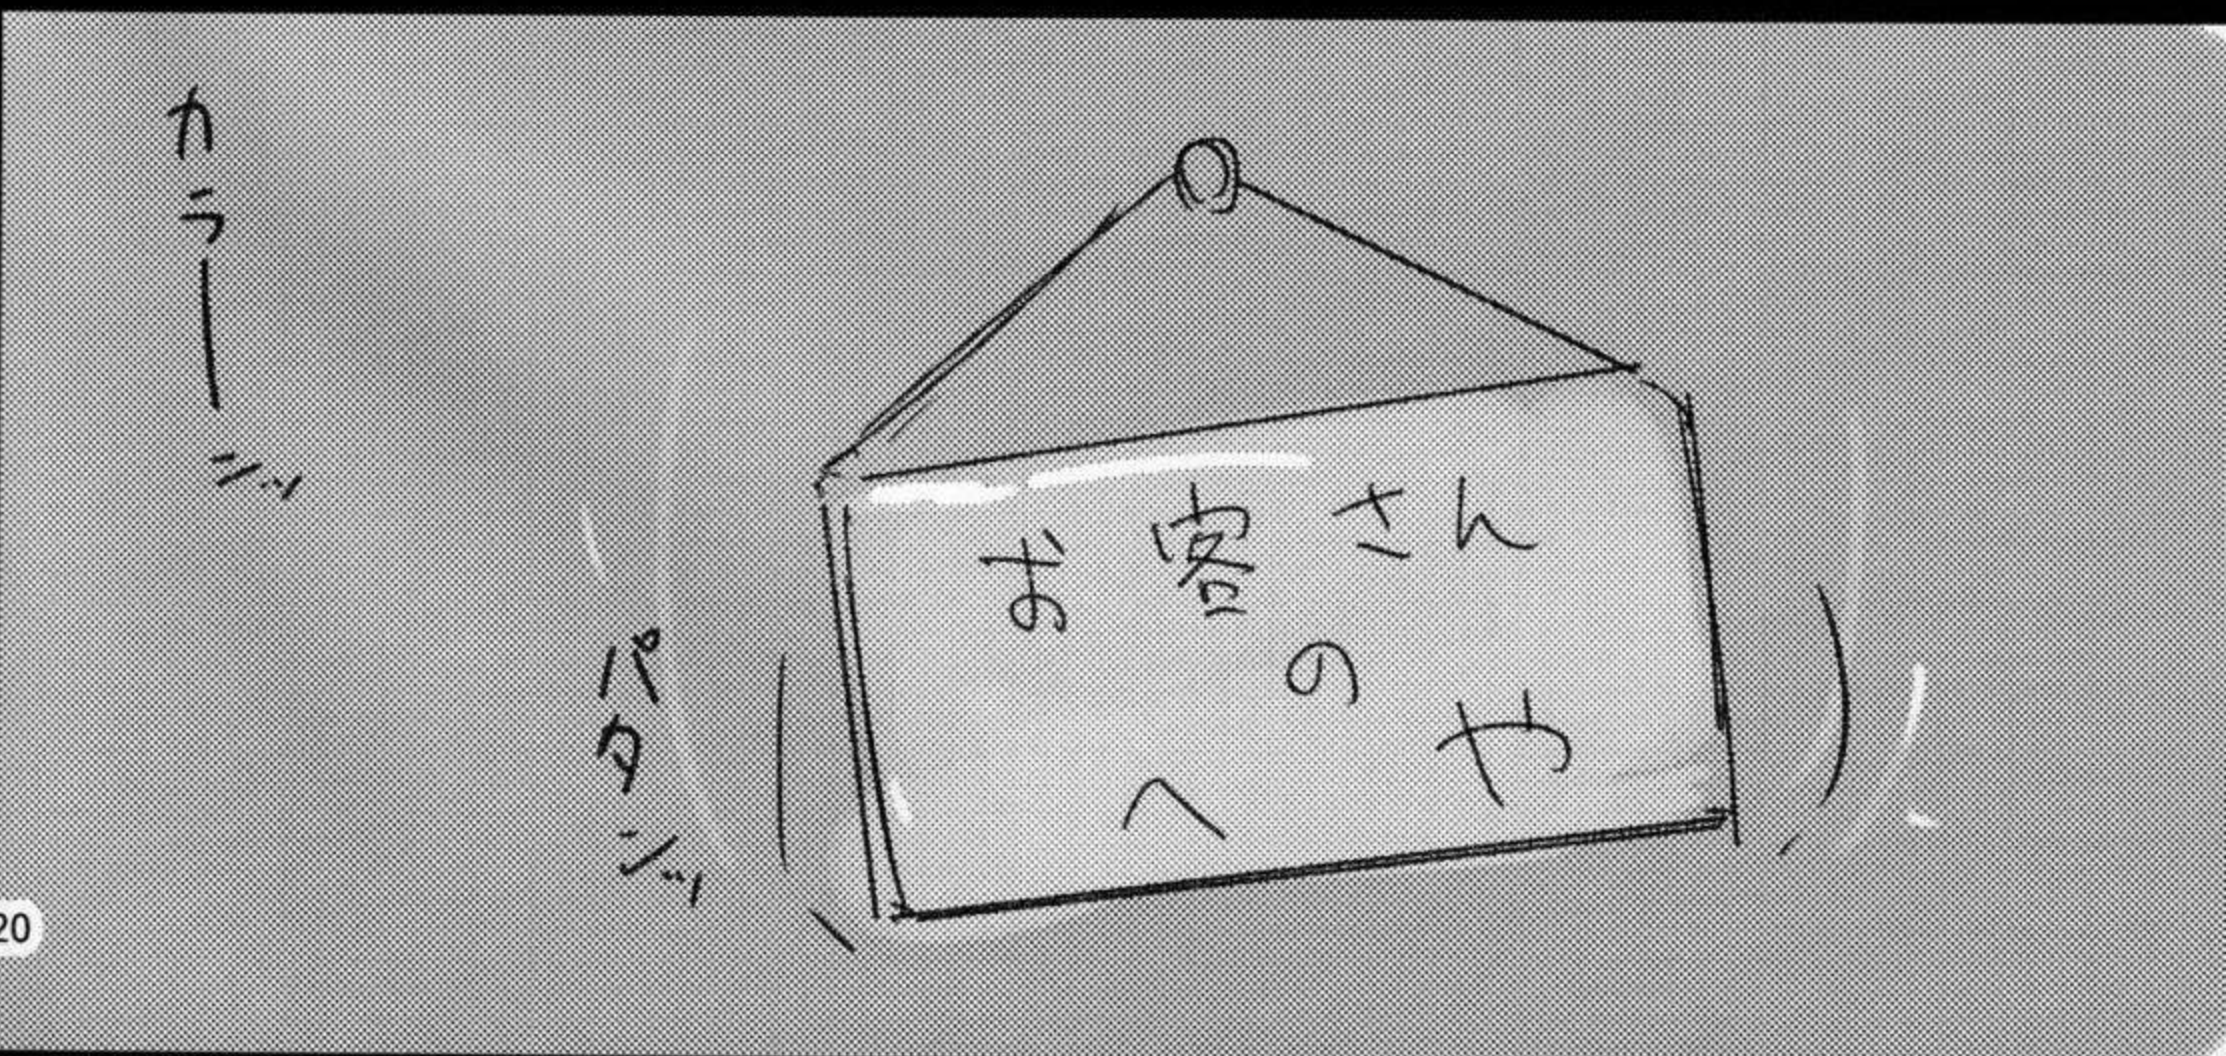 カラーンッ
パタンッ
お客さん
の
へや
20